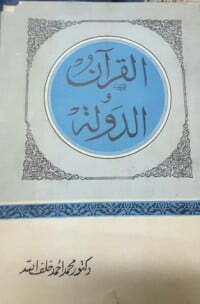 القرآن
و
الدولة
دكتور محمد احمد خلف الله